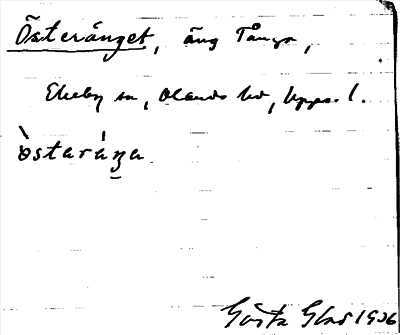 Österänget, äng Tånga,
Ekeby sn, Olands hd, Upps. l.
òstaráŋa
Gösta Glad 1936